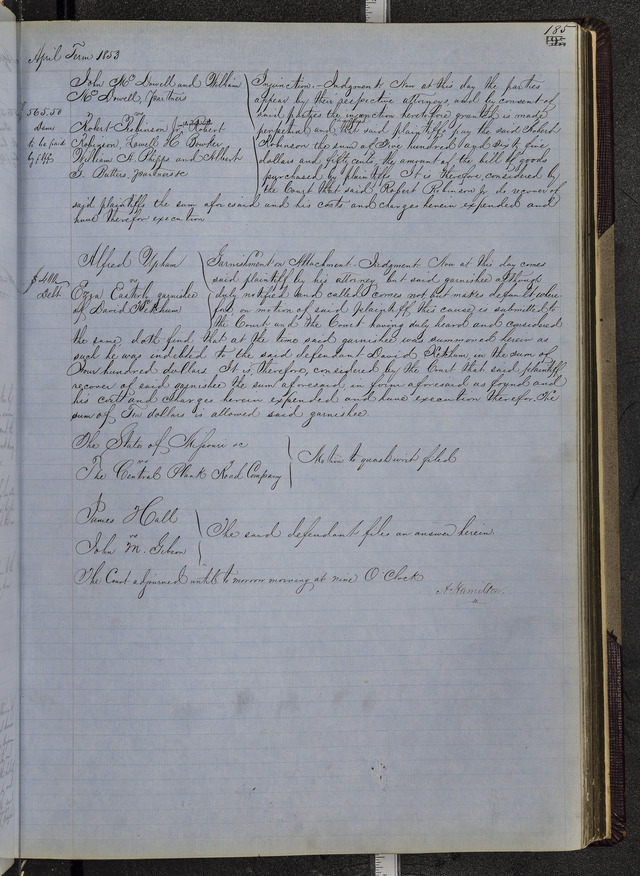 185
April Term 1853
John McDowell and William
McDowell, partners
vs
Robert Robinson Jr, Robert
Robinson, Lowell H. Bowker
William H. Phipps and Albert
G. Butters, partners &c
$565.50
Dams
to be paid
by plffs
Injunction.- Judgment. Now at this day the parties
appear by their respective attorneys, and by consent of
said parties the injunction heretofore granted is made
perpetual and that said plaintiffs pay the said Robert
Robinson the sum of Five hundred and Sixty five
dollars and fifty cents, the amount of the bill of goods
purchased by plaintiffs. It is therefore considered by
the Court that said Robert Robinson Jr do recover of
said plaintiffs the sum aforesaid and his costs and charges herein expended and
have therefor execution
Alfred Upham
vs
Ezra Easterly garnishee
of David Ketchum
$400
Debt
Garnishment on Attachment. Judgment. Now at this day comes
said plaintiff by his attorney but said garnishee although
duly notified and called comes not but makes default, where
fore on motion of said plaintiff, this cause is submitted to
the Court and the Court having duly heard and considered
the same, doth find that at the time said garnishee was summoned herein as
such he was indebted to the said defendant David Ketchum, in the sum of
Four hundred dollars. It is therefore, considered by the Court that said plaintiff
recover of said garnishee the sum aforesaid in form aforesaid as found and
his costs and charges herein expended and have execution therefor. The
sum of Ten dollars is allowed said garnishee.
The State of Missouri &c
vs
The Central Plank Road Company
Motion to quash writ filed
James Hall
vs
John M. Gibson
The said defendant files an answer herein
The Court adjourned until to morrow morning at nine O'Clock
A Hamilton.